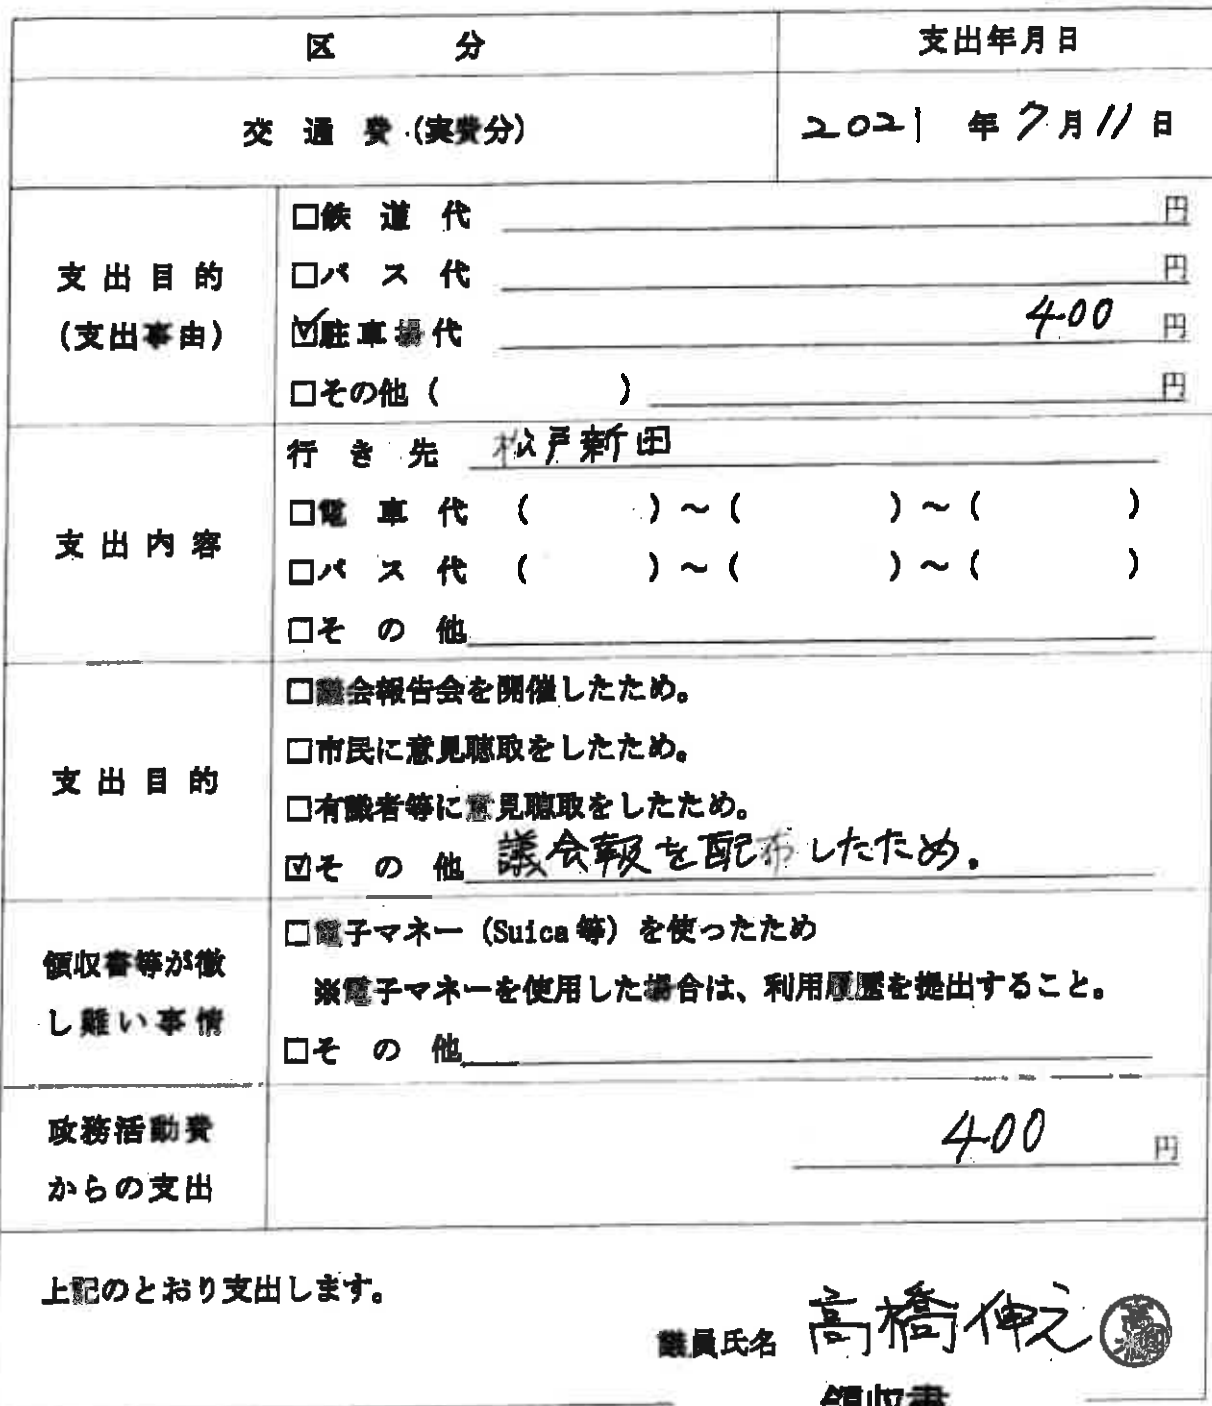 区 分 支出年月日
交 通 費 (実費分) 2021 年 7 月 11 日
支出目的
(支出事由)
□鉄 道 代 円
□バ ス 代 円
☑駐車場代 400 円
□その他 ( ) 円
支出内容
行 き 先 松戸新田
□電 車 代 ( )~( )~( )
□バ ス 代 ( )~( )~( )
□そ の 他
支出目的
□議会報告会を開催したため。
□市民に意見聴取をしたため。
□有識者等に意見聴取をしたため。
☑そ の 他 議会報を配布したため。
領収書等が徴
し難い事情
□電子マネー (Suica等) を使ったため
※電子マネーを使用した場合は、利用履歴を提出すること。
□そ の 他
政務活動費
からの支出
400 円
上記のとおり支出します。
議員氏名 高橋伸之
領収書